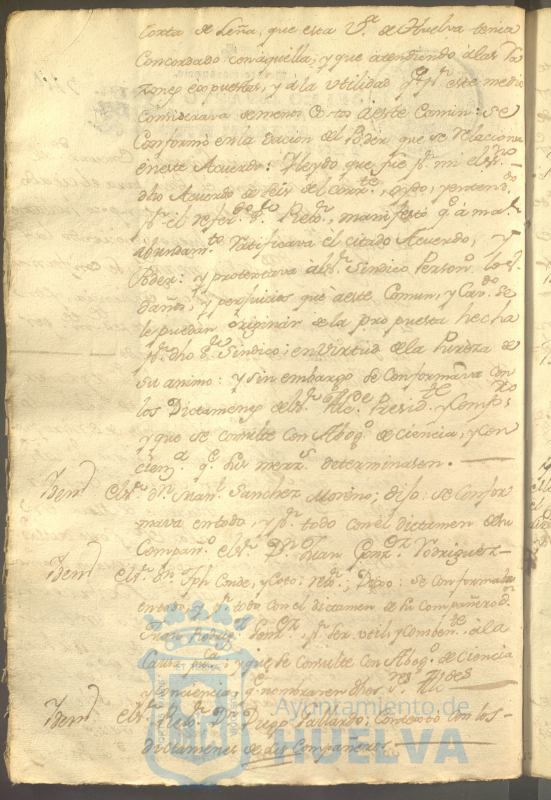 Corta de Leña, que esta V.ª de Huelva tenia
Concordado con aquella; y que atendiendo a las Ra
zones expuestas, y a la utilidad q.e p.r este medio
Considerava de menos Costo a este Comun: Se
Conformó en la dacion del Poder que se relaciona
en este Acuerdo: Y leydo, que fue p.r mi el ess.no
dho Acuerdo de seis del Corr.te, oydo, y entend.do
p.r el refer.do S.r Reg.r, manifestó q.e á ma.r
abundam.to Ratificava el citado Acuerdo, y
Poder: y protestava al S.r Sindico Person.o los
daños, y perjuicios que a este Comun, y Cav.do se
le puedan originar de la propuesta hecha
p.r dho S.r Sindico; en virtud de la Pureza de
su animo: y sin embargo se Conformava con
los Dictamenes del S.r Alc.de Presid.te y Comp.ro
y que se consulte con Abog.o de ciencia, y con
cien.a q.e Sus merz.s determinasen.
Item el S.r D.n Juan Sanchez Moreno; dijo: se Confor
mava en todo, y p.r todo con el dictamen de su
Compañ.o el S.r D.n Juan Gonz.z Rodriguez
Item el S.r D.n Jph Conde, y Coto: reg.r; Dijo: se conformaba
en todo, y p.r todo con el dictamen de su Compañero D.n
Juan Rodrig.z Gonz.z p.r ser util, y comben.te a la
Causa pu.ca; y que se Consulte con Abog.o de Ciencia
y Conciencia, q.e nombraren dhos S.res Alc.des
Item el S.r Reg.r D.n Diego Gallardo; Contextó con los
dictamenes de dos Compañeros.
Ayuntamiento de
HUELVA